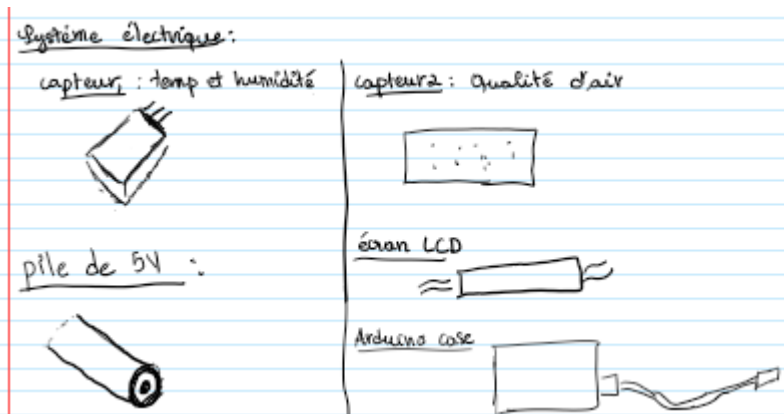 Système électrique:
capteur1 : temp et humidité
capteur2 : Qualité d'air
pile de 5V :
écran LCD
Arduino case